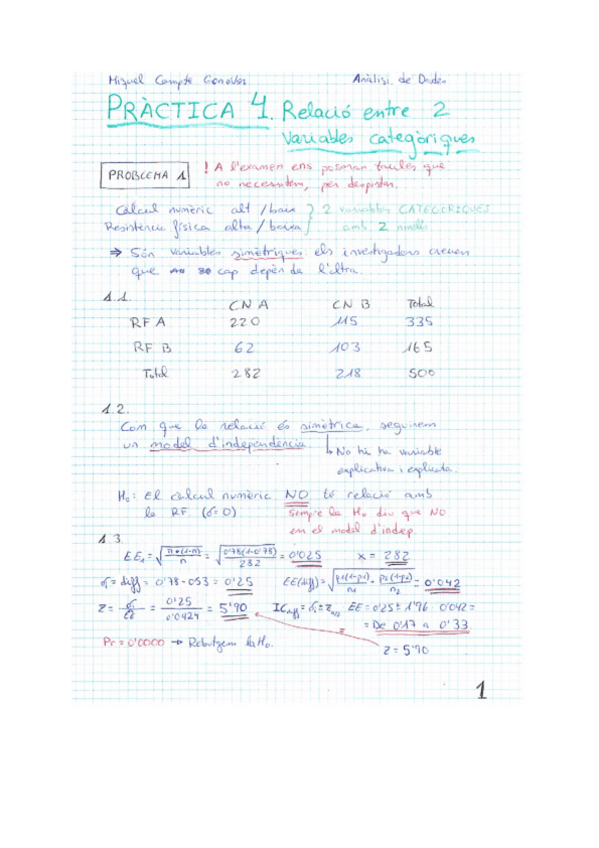 Miquel Compte Gonoves Anàlisi de Dades
PRÀCTICA 4. Relació entre 2
Variables categòriques
PROBLEMA 1
! A l'examen ens posaran taules que
no necessitem, per despistar.
Càlcul numèric alt / baix } 2 variables CATEGÒRIQUES
Resistència física alta / baixa } amb 2 nivells
⇒ Són variables simètriques, els investigadors creuen
que cap depèn de l'altra.
1.1.
CN A CN B Total
RF A 220 115 335
RF B 62 103 165
Total 282 218 500
1.2.
Com que la relació és simètrica, seguirem
un model d'independència.
↳ No hi ha variable
explicativa i explicada.
H₀: El càlcul numèric NO té relació amb
la RF. (σ=0)
Sempre la H₀ diu que NO
en el model d'indep.
1.3.
EE₁ = √(π·(1-π)/n) = √(0'78(1-0'78)/282) = 0'025 x = 282
σ = diff = 0'78-053 = 0'25 EE(diff) = √(p1(1-p1)/n1 + p2(1-p2)/n2) = 0'042
Z = σ/EE = 0'25/0'0424 = 5'90 IC diff = σ ± Zα/2 · EE = 0'25 ± 1'96 · 0'042 =
= De 0'17 a 0'33.
Pr = 0'0000 → Rebutgem la H₀.
Z = 5'90
1